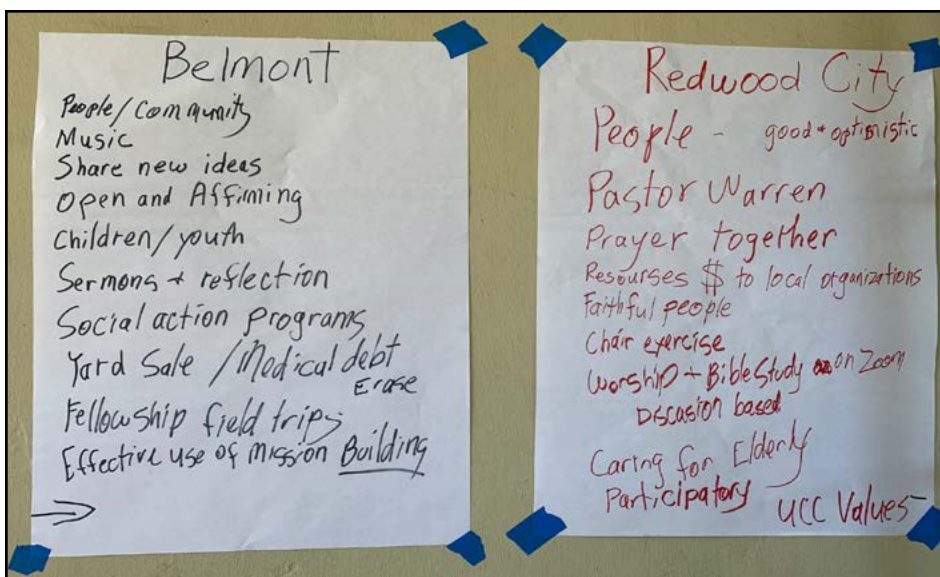 Belmont
People/Community
Music
Share new ideas
Open and Affirming
Children/youth
Sermons + reflection
Social action programs
Yard Sale /Medical debt
Erase
Fellowship field trips
Effective use of mission Building
Redwood City
People - good + optimistic
Pastor Warren
Prayer together
Resourses $ to local organizations
Faithful people
Chair exercise
Worship + Bible Study on Zoom
Discasion based
Caring for Elderly
Participatory
UCC Values